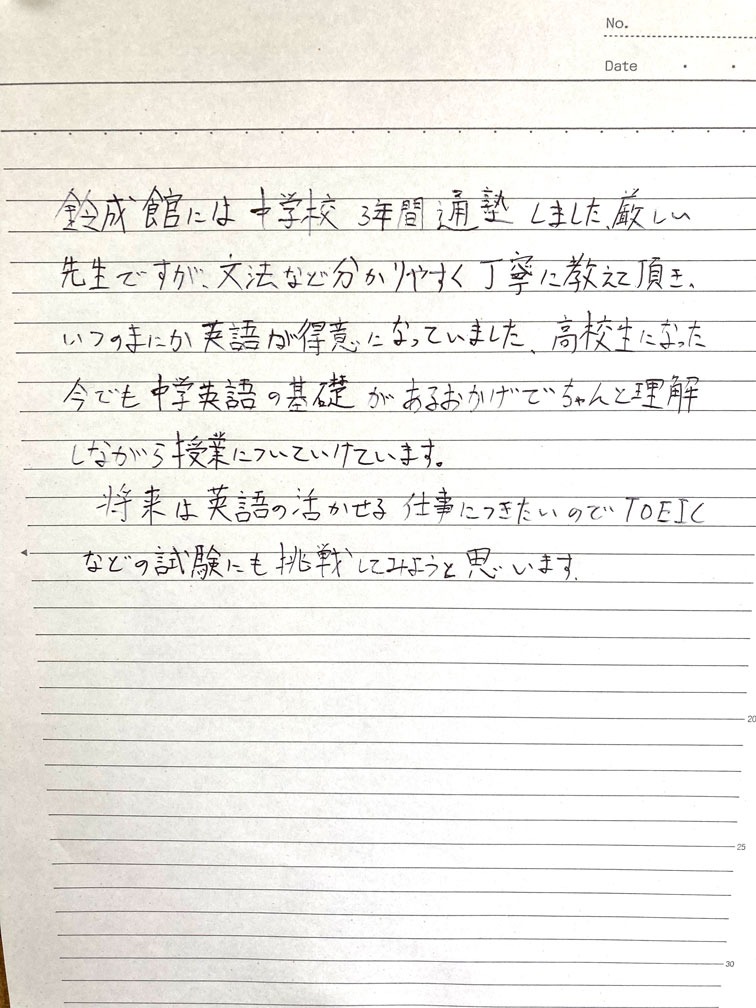 No.
Date
鈴成館には中学校3年間通塾しました、厳しい
先生ですが、文法など分かりやすく丁寧に教えて頂き、
いつのまにか英語が得意になっていました、高校生になった
今でも中学英語の基礎があるおかげでちゃんと理解
しながら授業についていけています。
将来は英語の活かせる仕事につきたいのでTOEIC
などの試験にも挑戦してみようと思います.
20
25
30